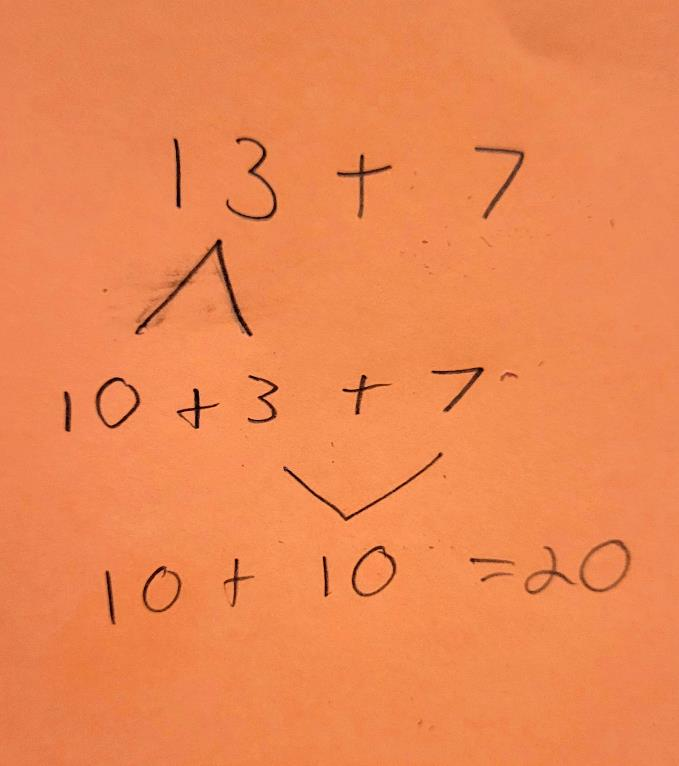 13 + 7
10 + 3 + 7
10 + 10 = 20